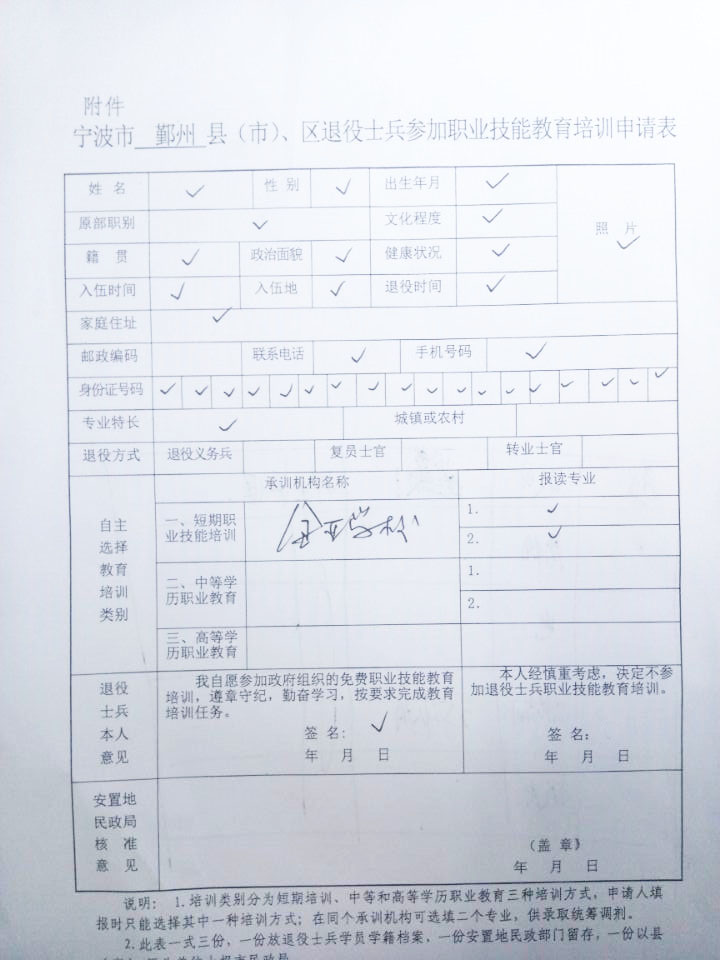 附件
宁波市 鄞州 县（市）、区退役士兵参加职业技能教育培训申请表
姓 名 ✓ 性 别 ✓ 出生年月 ✓
原部职别 ✓ 文化程度 ✓
照 片 ✓
籍 贯 ✓ 政治面貌 ✓ 健康状况 ✓
入伍时间 ✓ 入伍地 ✓ 退役时间 ✓
家庭住址 ✓
邮政编码 联系电话 ✓ 手机号码 ✓
身份证号码 ✓ ✓ ✓ ✓ ✓ ✓ ✓ ✓ ✓ ✓ ✓ ✓ ✓ ✓ ✓ ✓ ✓ ✓
专业特长 ✓ 城镇或农村
退役方式 退役义务兵 复员士官 转业士官
自主
选择
教育
培训
类别
承训机构名称 报读专业
一、短期职
业技能培训
学校
1. ✓
2. ✓
二、中等学
历职业教育
1.
2.
三、高等学
历职业教育
退役
士兵
本人
意见
我自愿参加政府组织的免费职业技能教育
培训，遵章守纪，勤奋学习，按要求完成教育
培训任务。
签 名： ✓
年 月 日
本人经慎重考虑，决定不参
加退役士兵职业技能教育培训。
签 名：
年 月 日
安置地
民政局
核 准
意 见
（盖 章）
年 月 日
说明： 1.培训类别分为短期培训、中等和高等学历职业教育三种培训方式，申请人填
报时只能选择其中一种培训方式；在同个承训机构可选填二个专业，供录取统筹调剂。
2.此表一式三份，一份放退役士兵学员学籍档案，一份安置地民政部门留存，一份以县